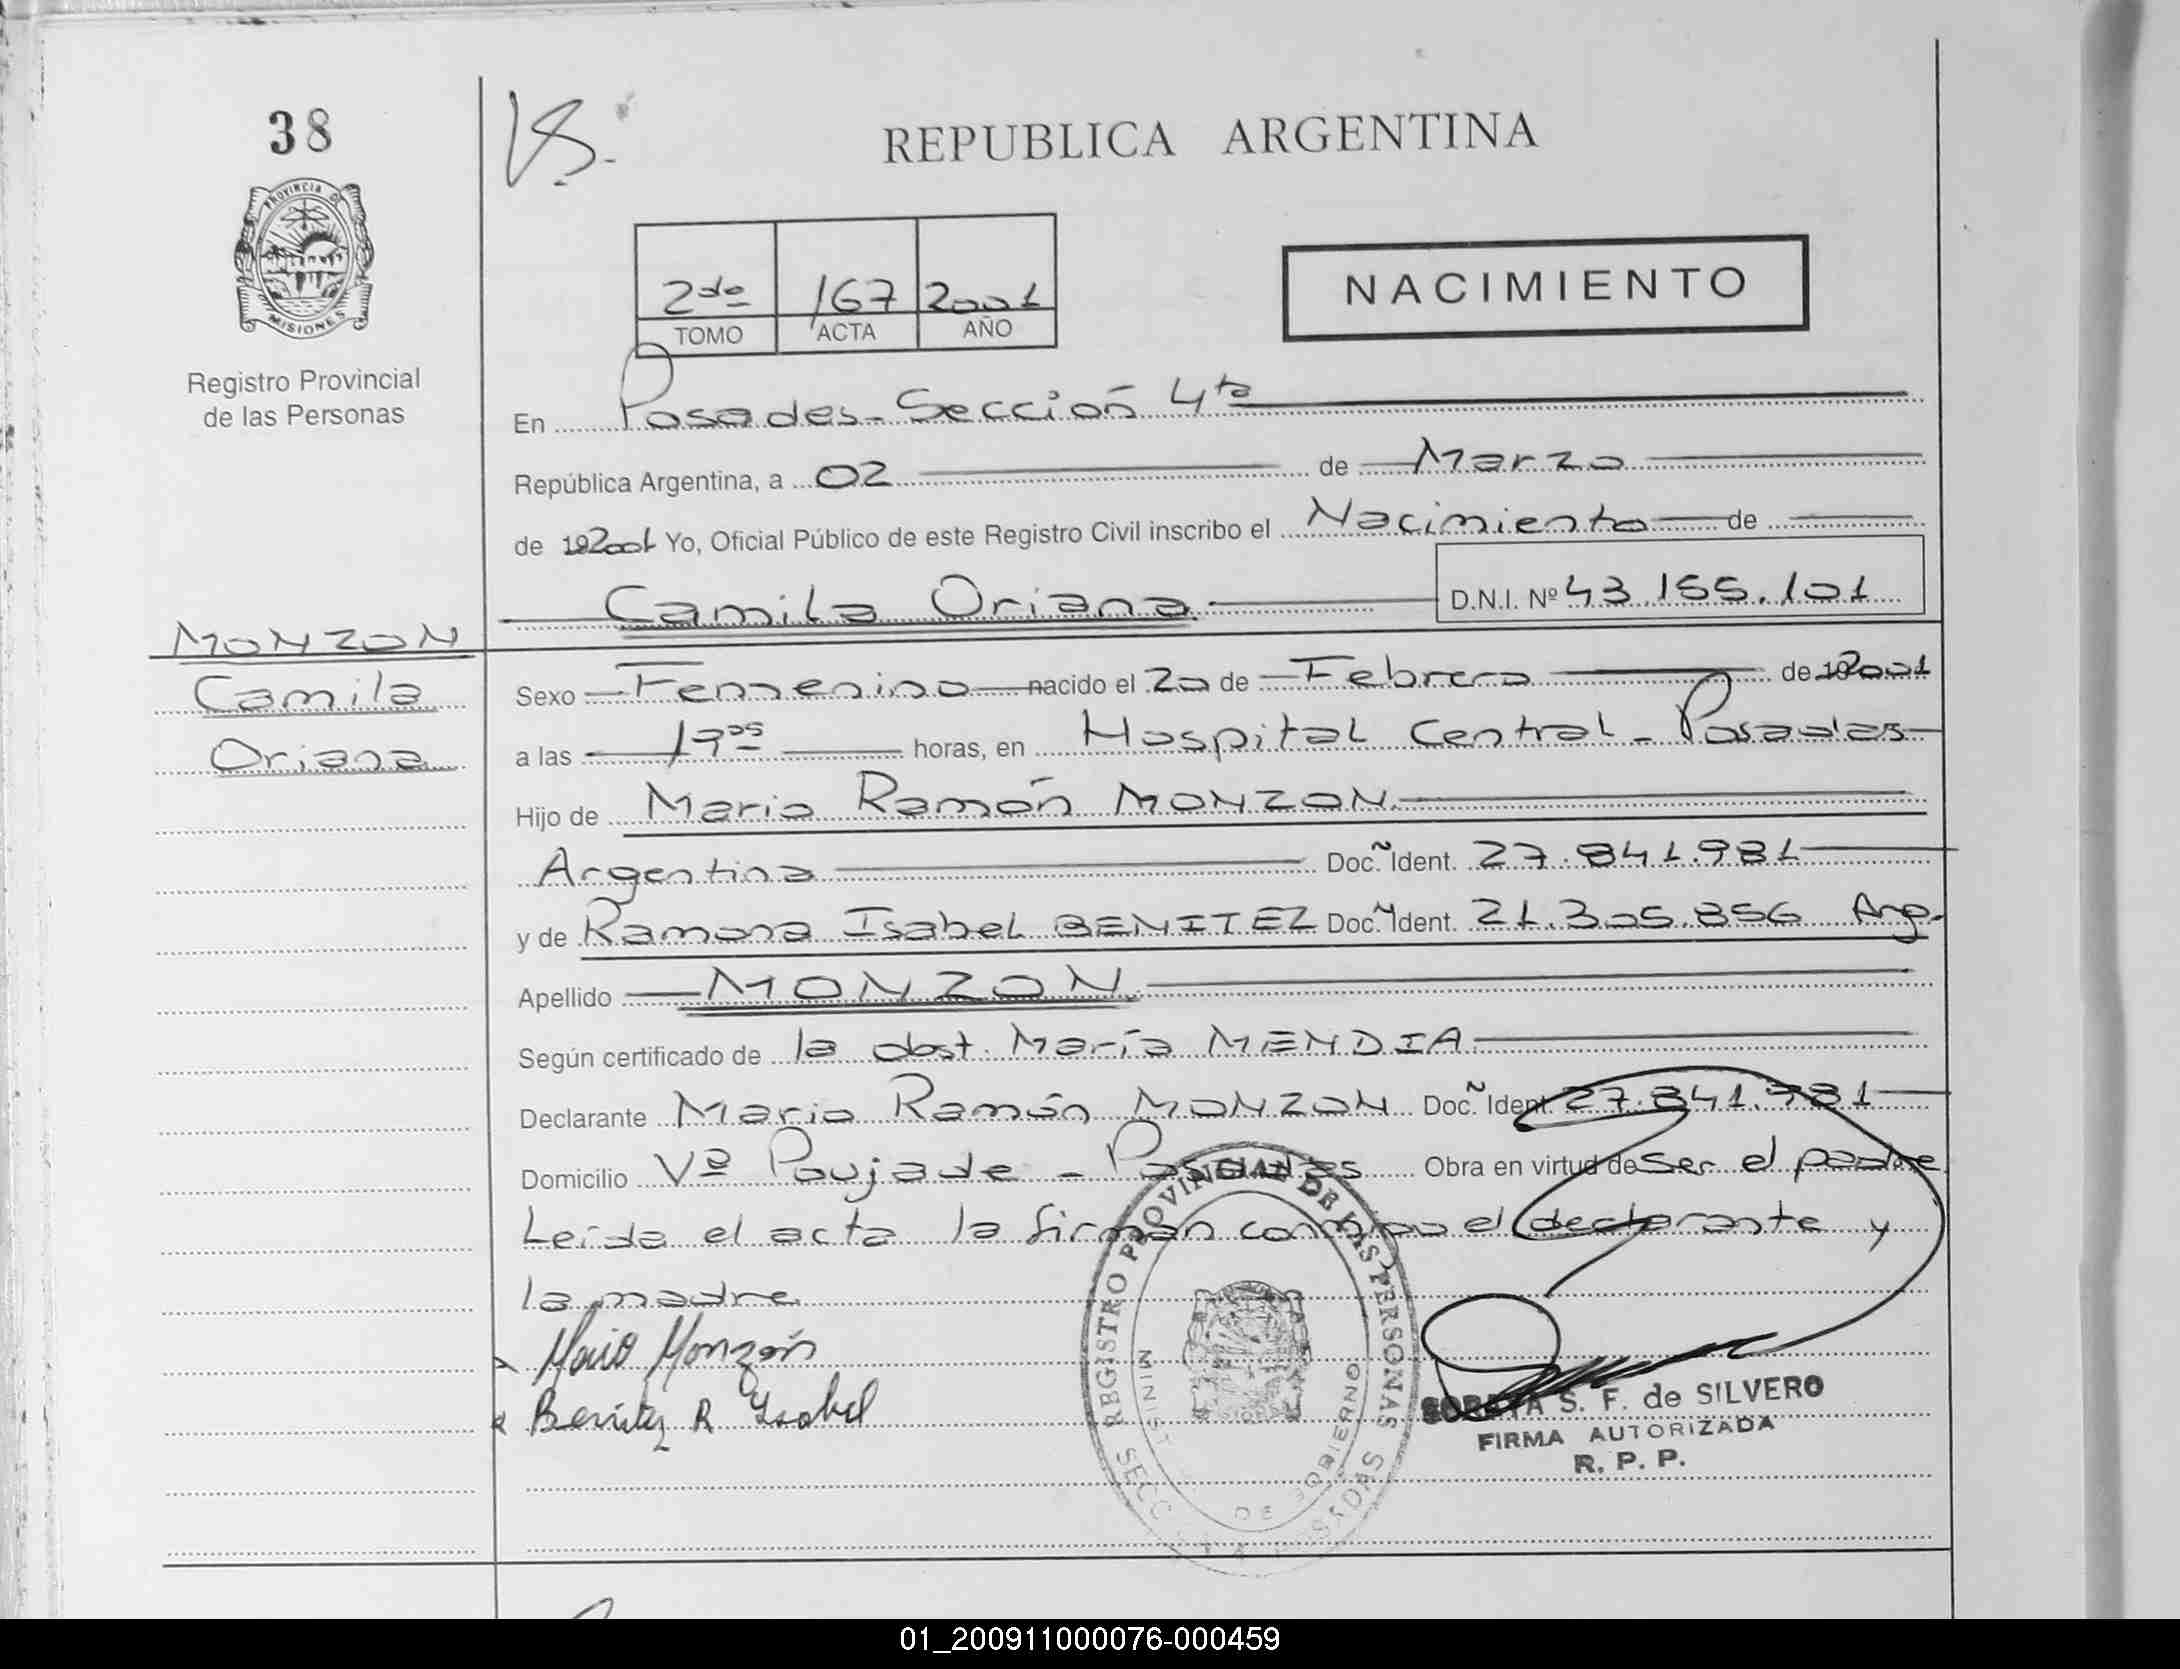 38
VS.
REPUBLICA ARGENTINA
PROVINCIA DE
MISIONES
2do 167 2001
TOMO ACTA AÑO
NACIMIENTO
Registro Provincial
de las Personas
En Posadas - Sección 4ta
República Argentina, a 02 de Marzo
de 192001 Yo, Oficial Público de este Registro Civil inscribo el Nacimiento de
Camila Oriana D.N.I. Nº 43.155.101
MONZON
Camila
Oriana
Sexo Femenino nacido el 20 de Febrero de 192001
a las 1905 horas, en Hospital Central - Posadas
Hijo de Mario Ramón MONZON
Argentina Doc. Ident. 27.841.981
y de Ramona Isabel BENITEZ Doc. Ident. 21.305.856 Arg.
Apellido MONZON
Según certificado de la obst. María MENDIA
Declarante Mario Ramón MONZON Doc. Ident. 27.841.981
Domicilio Vº Poujade - Posadas Obra en virtud de ser el padre
Leída el acta la firman conmigo el declarante y
la madre
Mario Monzón
Benitez R Isabel
REGISTRO PROVINCIAL DE LAS PERSONAS
MINIST DE GOBIERNO
SECC POSADAS
S. F. de SILVERO
FIRMA AUTORIZADA
R. P. P.
01_200911000076-000459